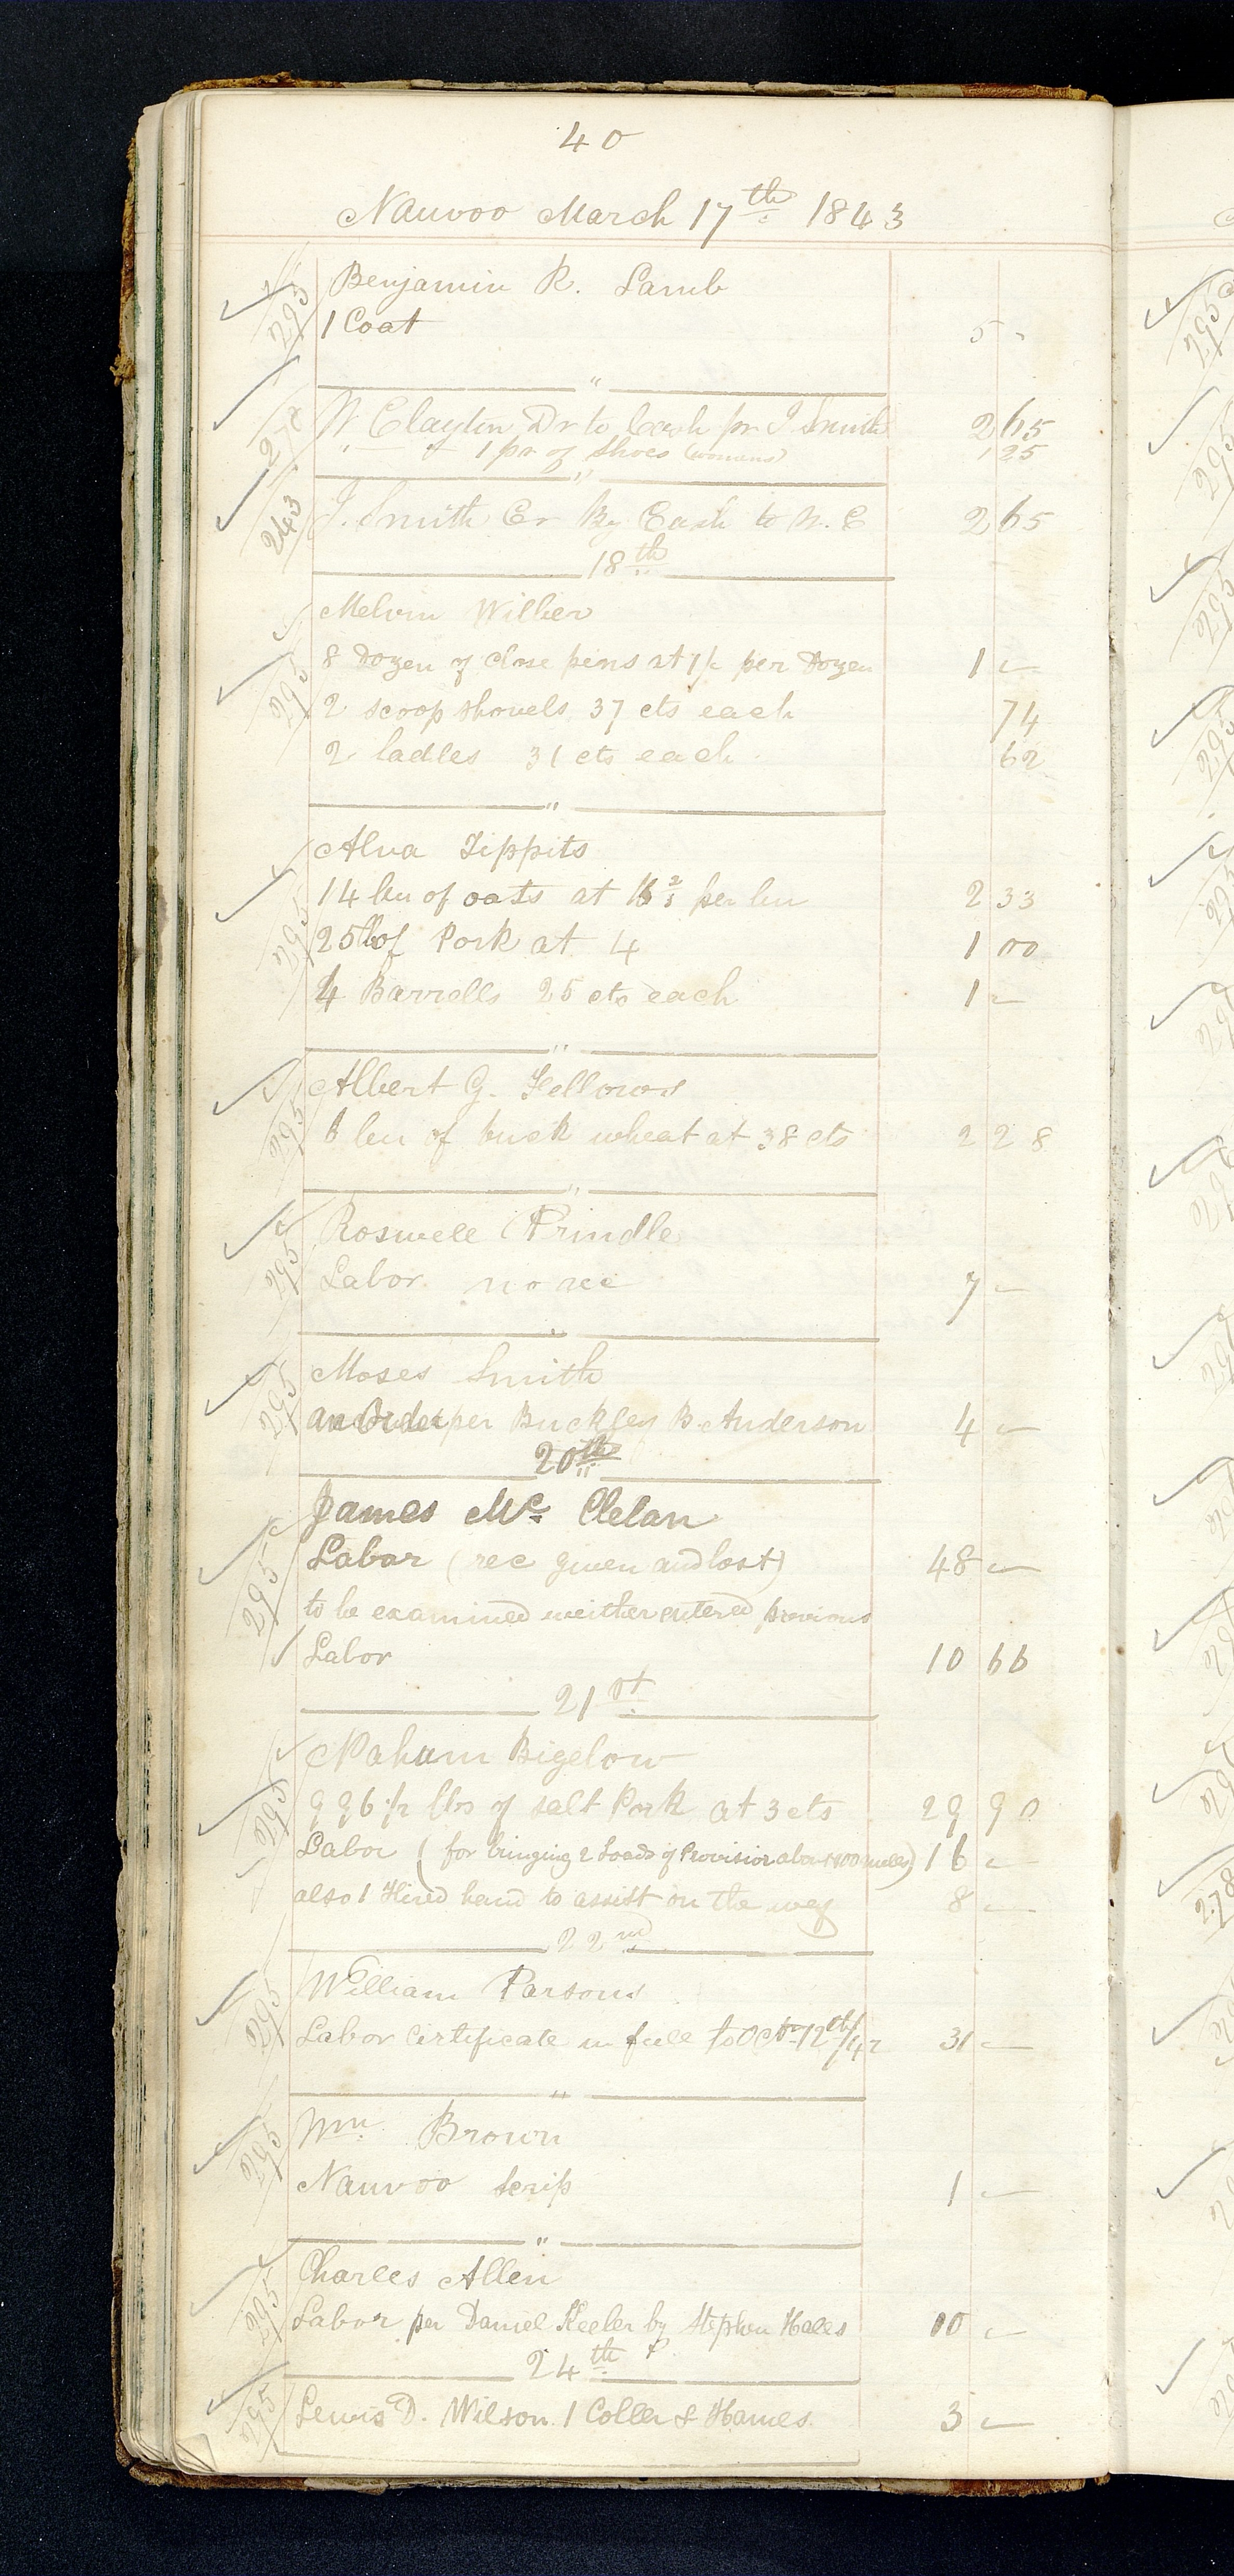 40
Nauvoo March 17th 1843
295 Benjamin R. Lamb
1 Coat 5 -
"
W Clayton Dr to Cash pr J Smith 2 65
" 1 pr of shoes (womens) 1 25
"
243 J. Smith Cr By Cash to W. C 2 65
18th
Melvin Wilber
295 8 Dozen of close pins at 1/- per Dozen 1 -
2 scoop shovels 37 cts each 74
2 ladles 31 cts each 62
"
Alva Tippits
295 14 bu of oats at 16 2/3 per bu 2 33
25 lb of Pork at 4 1 00
4 Barrells 25 cts each 1 -
"
Albert G. Fellows
295 6 bu of buck wheat at 38 cts 2 28
"
Roswell Prindle
295 Labor no rec 7 -
"
Moses Smith
295 an Order per Buckley B. Anderson 4 -
20th
James Mc Clelan
295 Labor (rec given and lost) 48 -
to be examined weither entered previous
Labor 10 66
21st
Naham Bigelow
295 996 1/2 lbs of salt Pork at 3 cts 29 90
Labor (for bringing 2 Loads of Provision about 100 miles) 16 -
also 1 Hired hand to assist on the way 8 -
22nd
295 William Parsons
Labor Certificate in full to Octr 12th/42 31 -
"
295 Wm Brown
Nauvoo scrip 1 -
"
Charles Allen
295 Labor per Daniel Keeler by Stephen Hales 10 -
24th
295 Lewis D. Wilson 1 Coller & Hames 3 -
295
295
295
295
295
278